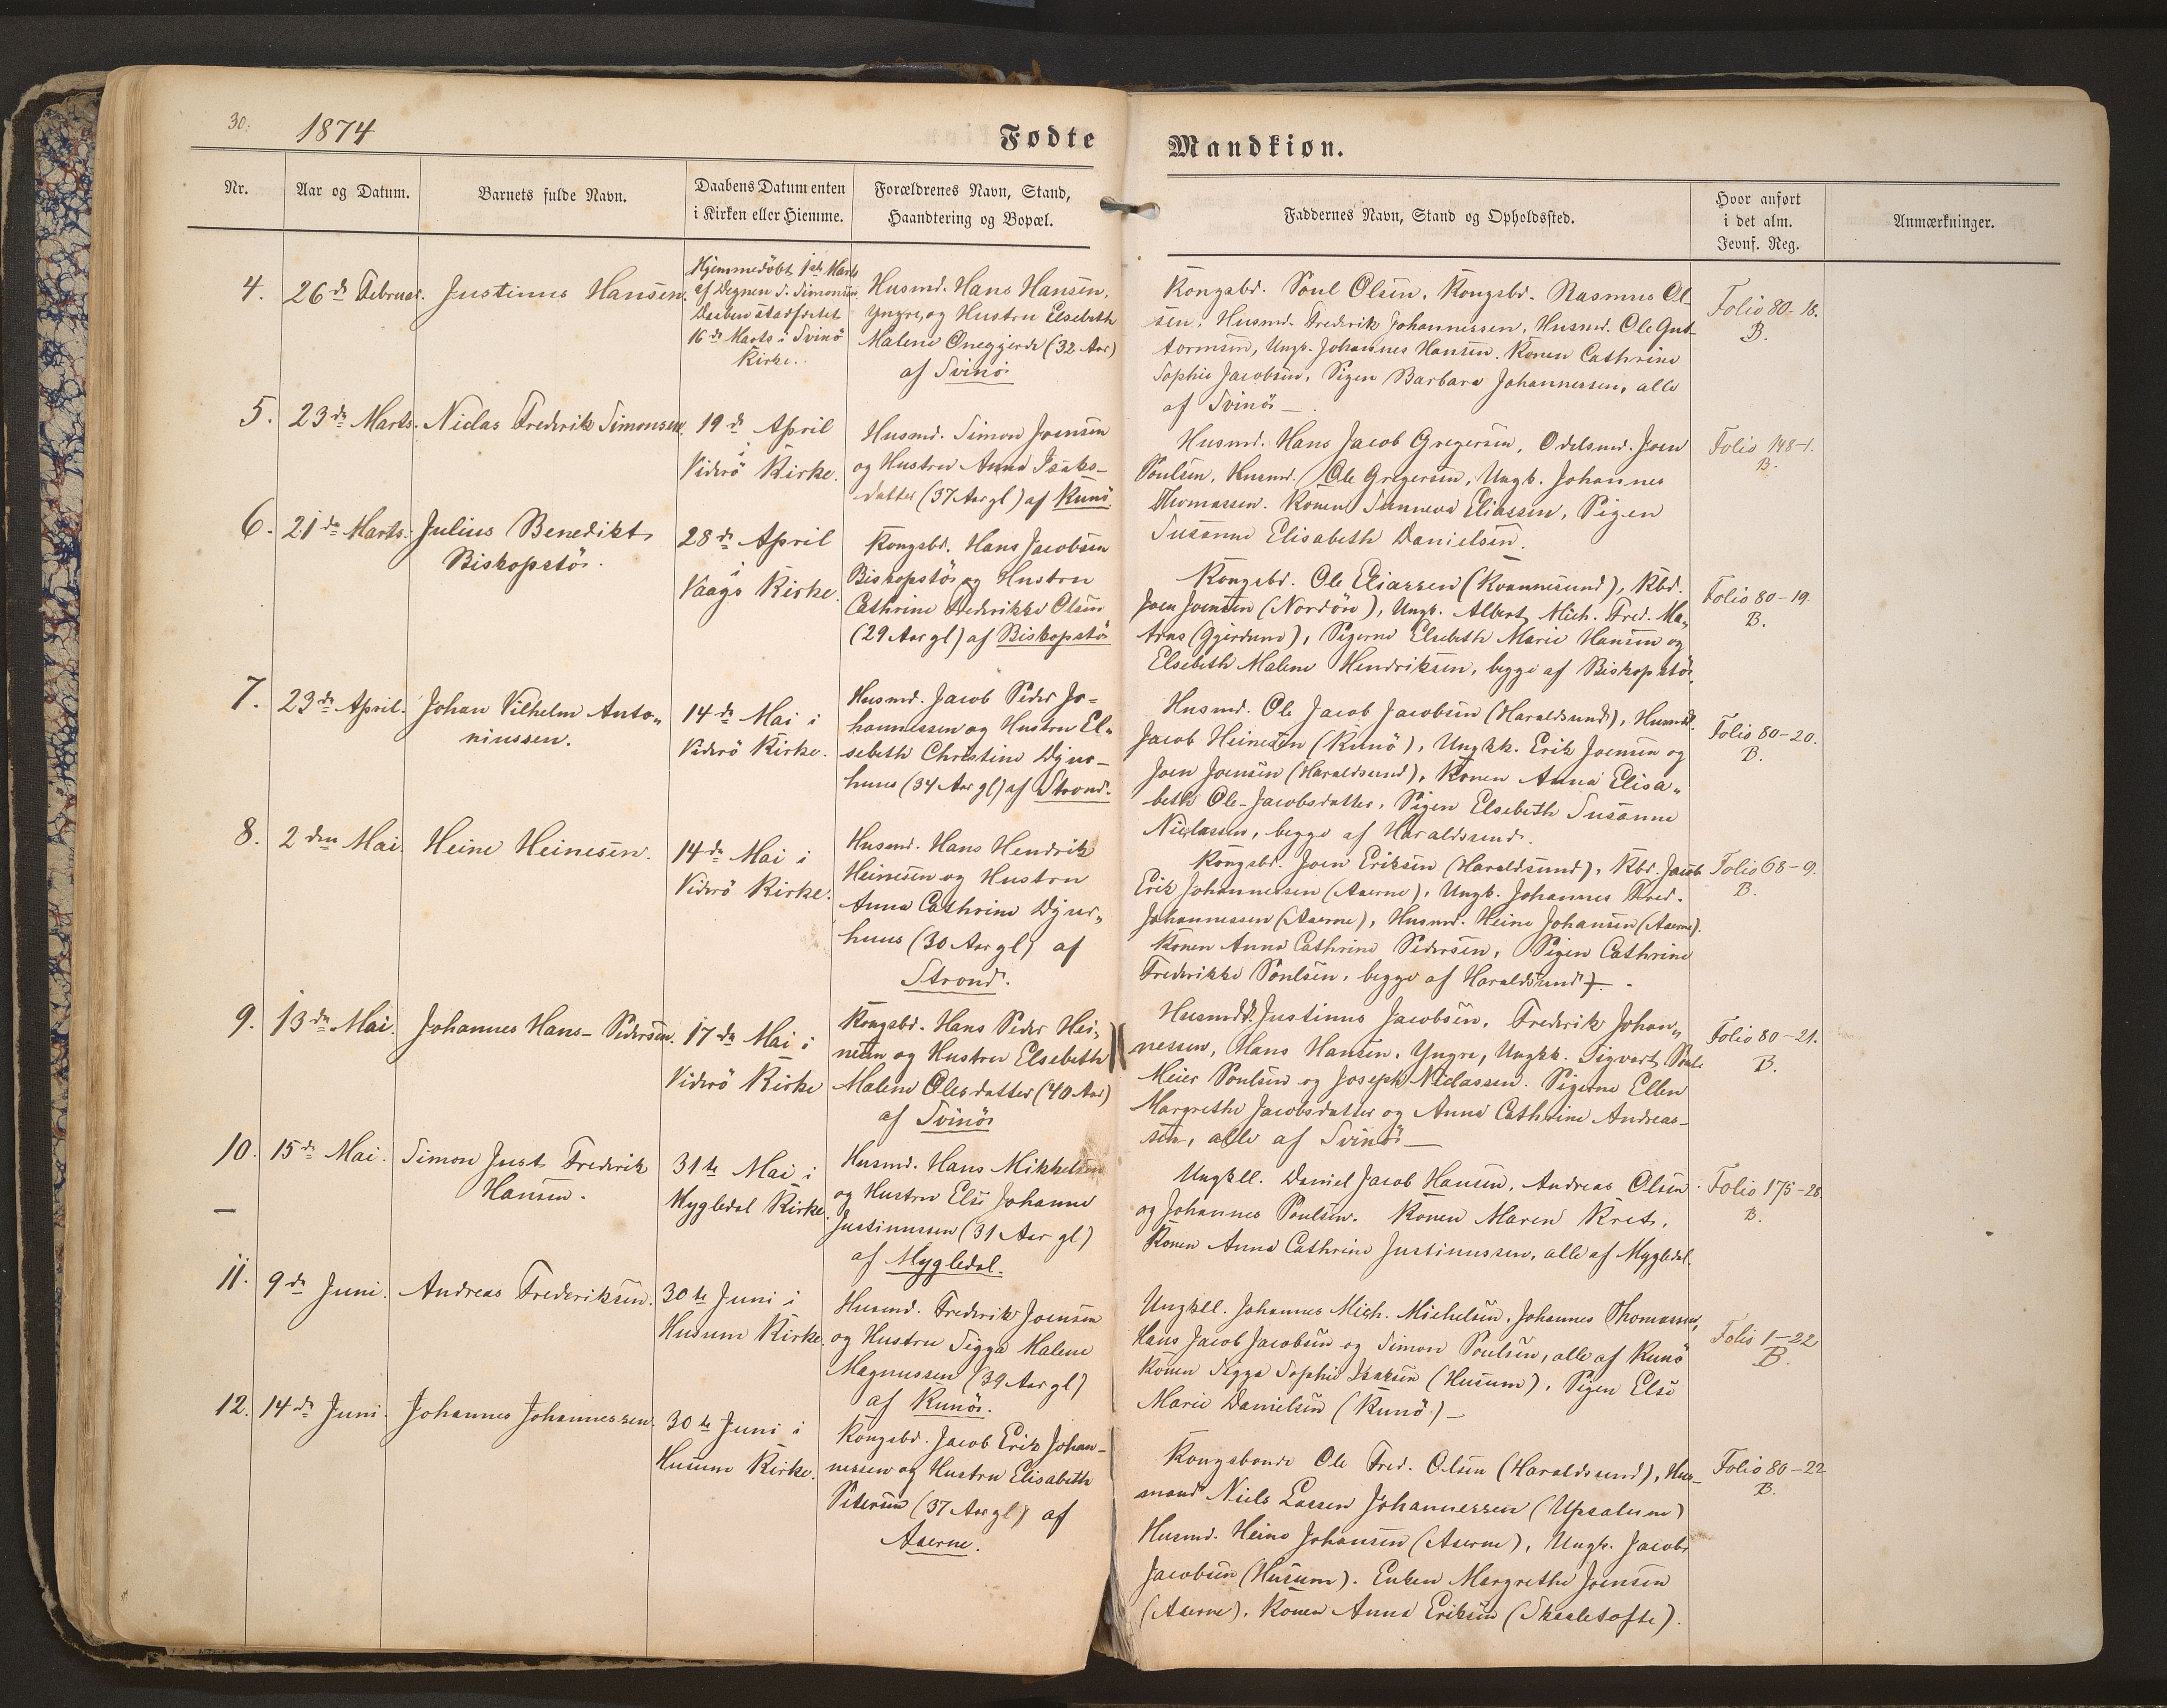 30.
1874
Fødte
Mandkiøn.
Nr.
Aar og Datum.
Barnets fulde Navn.
Daabens Datum enten
i Kirken eller Hiemme.
Forældrenes Navn, Stand,
Haandtering og Bopæl.
Faddernes Navn, Stand og Opholdssted.
Hvor anført
i det alm.
Jevnf. Reg.
Anmærkninger.
4.
26de Februar.
Justinus Hansen.
Hjemmedöbt 1ste Marts
af Degnen S. Simonsen
Daaben stadfæstet
16de Marts i Svinö
Kirke.
Husmd. Hans Hansen,
Yngre, og Hustru Elsebeth
Malene Oneggjerde (32 Aar)
af Svinö
Kongsbd. Poul Olsen, Kongsbd. Rasmus Ol-
sen, Husmd. Frederik Johannessen, Husmd. Ole Gut-
tormsen, Ungk. Johannes Hansen. Konen Cathrine
Sophie Jacobsen, Pigen Barbara Johannessen, alle
af Svinö —
Folio 80-18.
B.
5.
23de Marts.
Niclas Frederik Simonsen.
19de April
i
Viderö Kirke.
Husmd. Simon Joensen
og Hustru Anna Isaks-
datter (37 Aar gl) af Kunö.
Husmd. Hans Jacob Gregersen, Odelsmd. Joen
Poulsen, Husmd. Ole Gregersen, Ungk. Johannes
Thomassen. Konen Sunneva Eliassen, Pigen
Susanne Elisabeth Danielsen.
Folio 148-1.
B.
6.
21de Marts.
Julius Benedikt
Biskopstö.
28de April
i
Vaags Kirke.
Kongsbd. Hans Jacobsen
Biskopstö og Hustru
Cathrine Frederikke Olsen
(29 Aar gl) af Biskopstö
Kongsbd. Ole Eliassen (Kvannesund), Kbd.
Joen Joensen (Nordöre), Ungk. Albert Mich. Fred. Ma-
tras (Gjerdum), Pigerne Elsebeth Marie Hansen og
Elsebeth Malene Hendriksen, begge af Biskopstö.
Folio 80-19.
B.
7.
23de April.
Johan Vilhelm Anto-
niussen.
14de Mai i
Viderö Kirke.
Husmd. Jacob Peder Jo-
hannessen og Hustru El-
sebeth Christine Djur-
huus (34 Aar gl) af Strond.
Husmd. Ole Jacob Jacobsen (Haraldsund), Husmd.
Jacob Heinesen (Kunö), Ungkk. Erik Joensen og
Joen Joensen (Haraldsund), Konen Anna Elisa-
beth Ole-Jacobsdatter, Pigen Elsebeth Susanne
Niclassen, begge af Haraldssund.
Folio 80-20.
B.
8.
2den Mai.
Heine Heinesen.
14de Mai i
Viderö Kirke.
Husmd. Hans Hendrik
Heinesen og Hustru
Anna Cathrine Djur-
huus (30 Aar gl) af
Strond.
Kongsbd. Joen Eriksen (Haraldsund), Kbd. Jacob
Erik Johannessen (Aaerne), Ungk. Johannes Fred.
Johannessen (Aaerne), Husmd. Heine Johansen (Aaerne).
Konen Anna Cathrine Pedersen, Pigen Cathrine
Frederikke Poulsen, begge af Haraldsund).
Folio 68-9.
B.
9.
13de Mai.
Johannes Hans-Pedersen.
17de Mai i
Viderö Kirke
Kongsbd. Hans Peder Hei-
nesen og Hustru Elsebeth
Malene Olesdatter (40 Aar)
af Svinö
Husmdd. Justinus Jacobsen, Frederik Johan-
nessen, Hans Hansen, Yngre, Ungkk. Sigvart Poul
Meier Poulsen og Joseph Niclassen. Pigerne Ellen
Margrethe Jacobsdatter og Anna Cathrine Andreas-
sen, alle af Svinö —
Folio 80-21.
B.
10.
15de Mai.
Simon Just Frederik
Hansen.
31te Mai i
Mygledal Kirke.
Husmd. Hans Mikkelsen
og Hustru Else Johanne
Justinussen (31 Aar gl)
af Mygledal.
Ungkll. Daniel Jacob Hansen, Andreas Olsen
og Johannes Poulsen. Konen Maren Kret,
Konen Anna Cathrine Justinussen, alle af Mygledal.
Folio 175-28.
B.
11.
9de Juni.
Andreas Frederiksen.
30te Juni i
Husum Kirke.
Husmd. Frederik Joensen
og Hustru Sigga Malene
Magnussen (39 Aar gl)
af Kunö.
Ungkll. Johannes Mich. Michelsen, Johannes Thomassen,
Hans Jacob Jacobsen og Simon Poulsen, alle af Kunö
Konen Sigga Sophie Isaksen (Husum), Pigen Else
Marie Danielsen (Kunö) —
Folio 1-22
B.
12.
14de Juni.
Johannes Johannessen.
30te Juni i
Husum Kirke.
Kongsbd. Jacob Erik Johan-
nessen og Hustru Elisabeth
Petersen (37 Aar gl) af
Aaerne.
Kongsbonde Ole Fred. Olsen (Haraldsund), Hus-
mand Niels Lassen Johannessen (Upsalum)
Husmd. Heine Johansen (Aaerne), Ungk. Jacob
Jacobsen (Husum). Enken Margrethe Joensen
(Aaerne), Konen Anna Eriksen (Skaaletofte).
Folio 80-22
B.